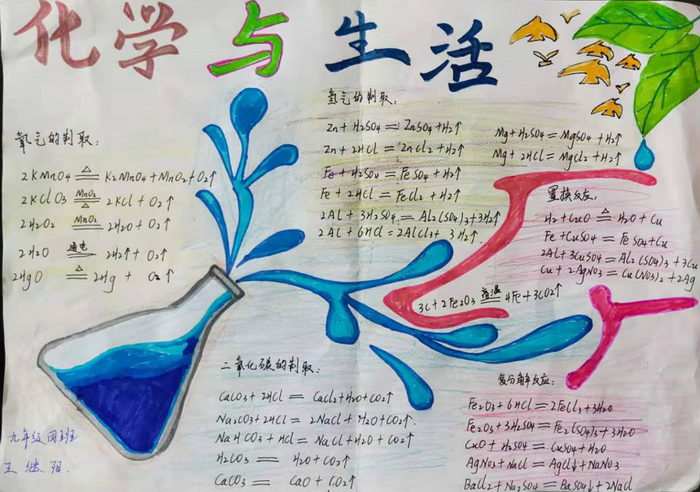 化学与生活
氧气的制取：
2KMnO4 ≜ K2MnO4+MnO2+O2↑
2KClO3 MnO2 ≜ 2KCl+O2↑
2H2O2 MnO2 = 2H2O+O2↑
2H2O 通电 = 2H2↑+O2↑
2HgO ≜ 2Hg + O2↑
氢气的制取：
Zn+H2SO4=ZnSO4+H2↑
Zn+2HCl=ZnCl2+H2↑
Fe+H2SO4=FeSO4+H2↑
Fe+2HCl=FeCl2+H2↑
2Al+3H2SO4=Al2(SO4)3+3H2↑
2Al+6HCl=2AlCl3+3H2↑
Mg+H2SO4=MgSO4+H2↑
Mg+2HCl=MgCl2+H2↑
置换反应：
H2+CuO ≜ H2O+Cu
Fe+CuSO4=FeSO4+Cu
2Al+3CuSO4=Al2(SO4)3+3Cu
Cu+2AgNO3=Cu(NO3)2+2Ag
3C+2Fe2O3 高温 = 4Fe+3CO2↑
二氧化碳的制取：
CaCO3+2HCl=CaCl2+H2O+CO2↑
Na2CO3+2HCl=2NaCl+H2O+CO2↑
NaHCO3+HCl=NaCl+H2O+CO2↑
H2CO3=H2O+CO2↑
CaCO3=CaO+CO2↑
复分解反应：
Fe2O3+6HCl=2FeCl3+3H2O
Fe2O3+3H2SO4=Fe2(SO4)3+3H2O
CuO+H2SO4=CuSO4+H2O
AgNO3+NaCl=AgCl↓+NaNO3
BaCl2+Na2SO4=BaSO4↓+2NaCl
九年级四班
王